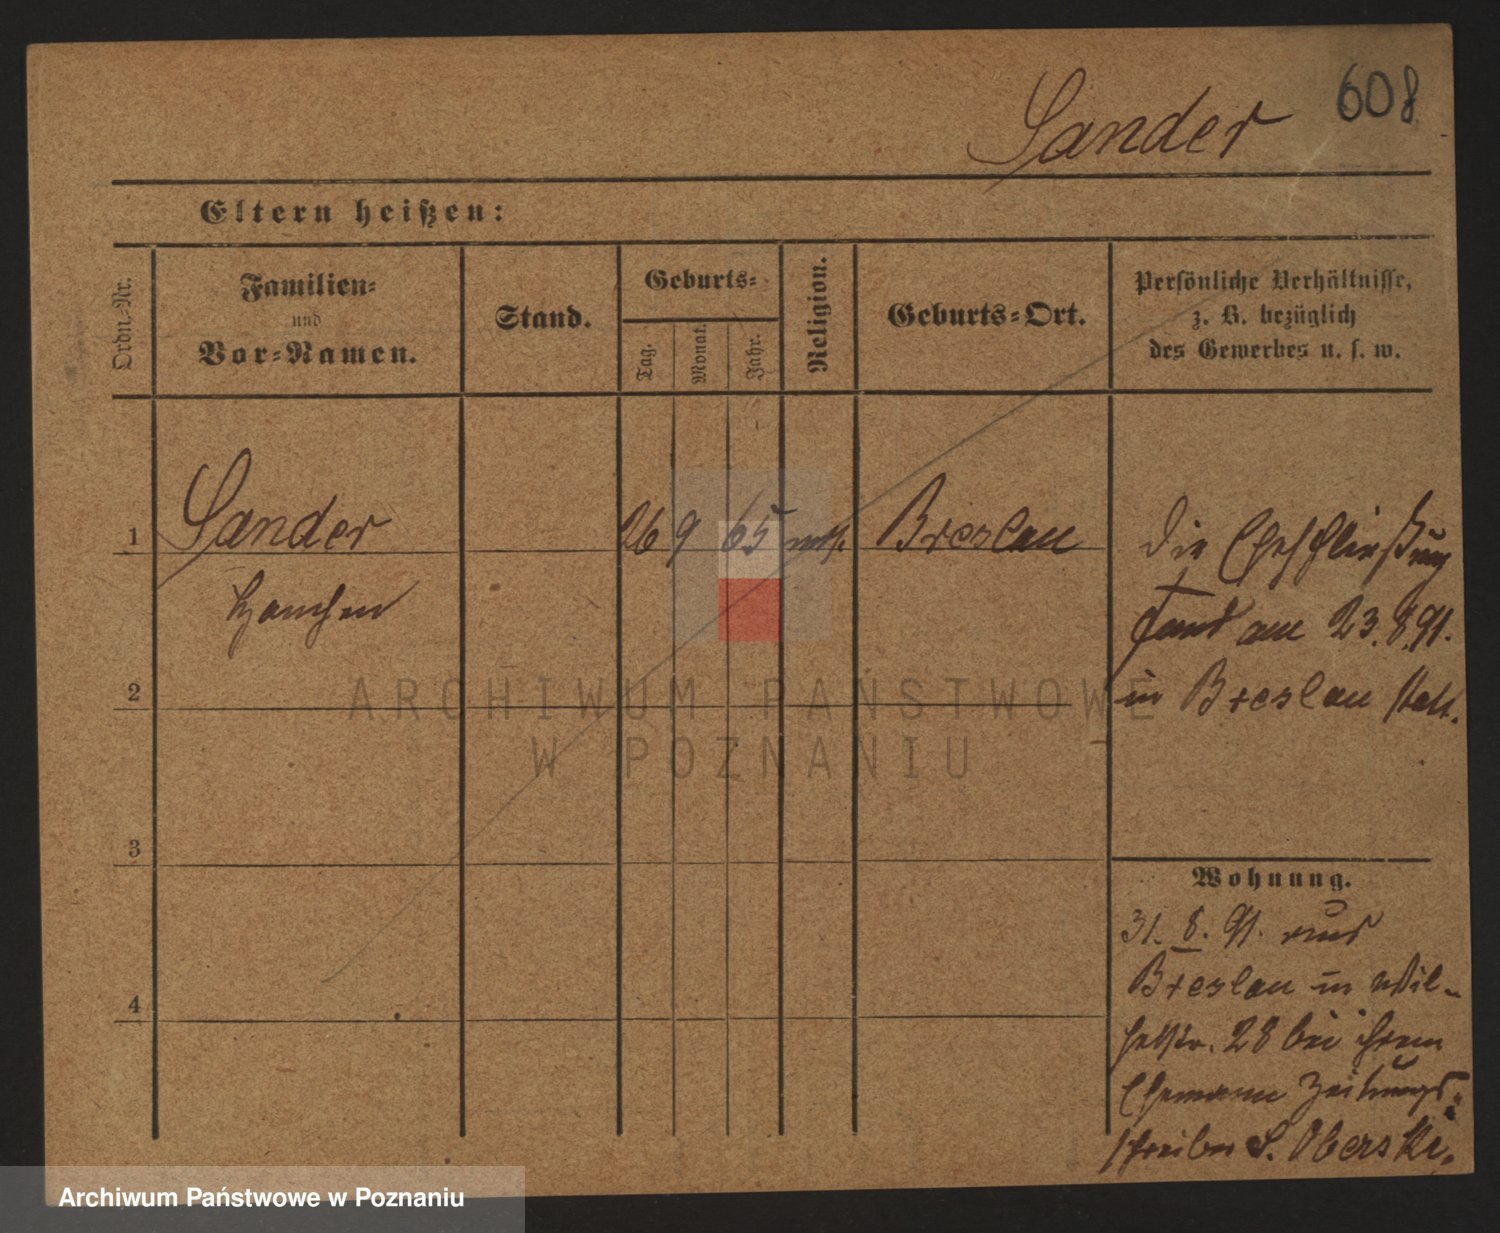 608
Sander
Eltern heißen:
Ordn.-Nr.
Familien-
und
Vor-Namen.
Stand.
Geburts-
Tag.
Monat.
Jahr.
Religion.
Geburts-Ort.
Persönliche Verhältnisse,
z. B. bezüglich
des Gewerbes u. s. w.
1
Sander
26 9 65
Breslau
Die Eheschließung
Hanchen
fand am 23.8.91.
2
in Breslau statt.
ARCHIWUM PAŃSTWOWE
W POZNANIU
3
Wohnung.
31. 8. 91. aus
Breslau in Wil-
4
helmstr. 28 bei ihrem
Ehemann Zeitungs-
schreiber S. Oberski.
Archiwum Państwowe w Poznaniu